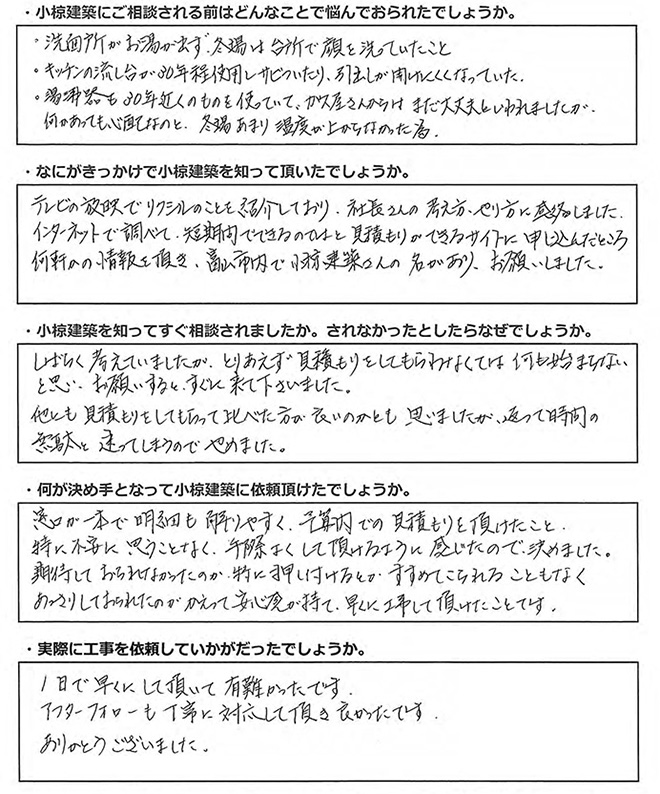 ・小椋建築にご相談される前はどんなことで悩んでおられたでしょうか。
・洗面所がお湯が出ず、冬場は台所で顔を洗っていたこと
・キッチンの流し台が30年程使用しサビついたり、引出しが開けにくくなっていた。
・湯沸器も30年近くのものを使っていて、ガス屋さんからは まだ大丈夫といわれましたが、
何かあっても心配なのと、冬場あまり温度が上がらなかった為。
・なにがきっかけで小椋建築を知って頂いたでしょうか。
テレビの放映でリクシルのことを紹介しており、社長さんの考え方、やり方に感動しました。
インターネットで調べて、短期内でできるのではと見積もりができるサイトに申し込んだところ
何軒かの情報を頂き、富山市内で小椋建築さんの名があり、お願いしました。
・小椋建築を知ってすぐ相談されましたか。されなかったとしたらなぜでしょうか。
しばらく考えていましたが、とりあえず見積もりをしてもらわなくては何も始まらない
と思い、お願いすると、すぐに来て下さいました。
他にも見積もりをしてもらって比べた方が良いのかとも思いましたが、返って時間の
無駄と迷ってしまうのでやめました。
・何が決め手となって小椋建築に依頼頂けたでしょうか。
窓口が一本で明細も解りやすく、予算内での見積もりを頂けたこと、
特に不安に思うことなく、手際よくして頂けるように感じたので決めました。
期待しておられなかったのか、特に押し付けるとか すすめてこられることもなく
あっさりしておられたのがかえって安心度が持て、早くに工事して頂けたことです。
・実際に工事を依頼していかがだったでしょうか。
1日で早くにして頂いて有難かったです。
アフターフォローも丁寧に対応して頂き良かったです。
ありがとうございました。